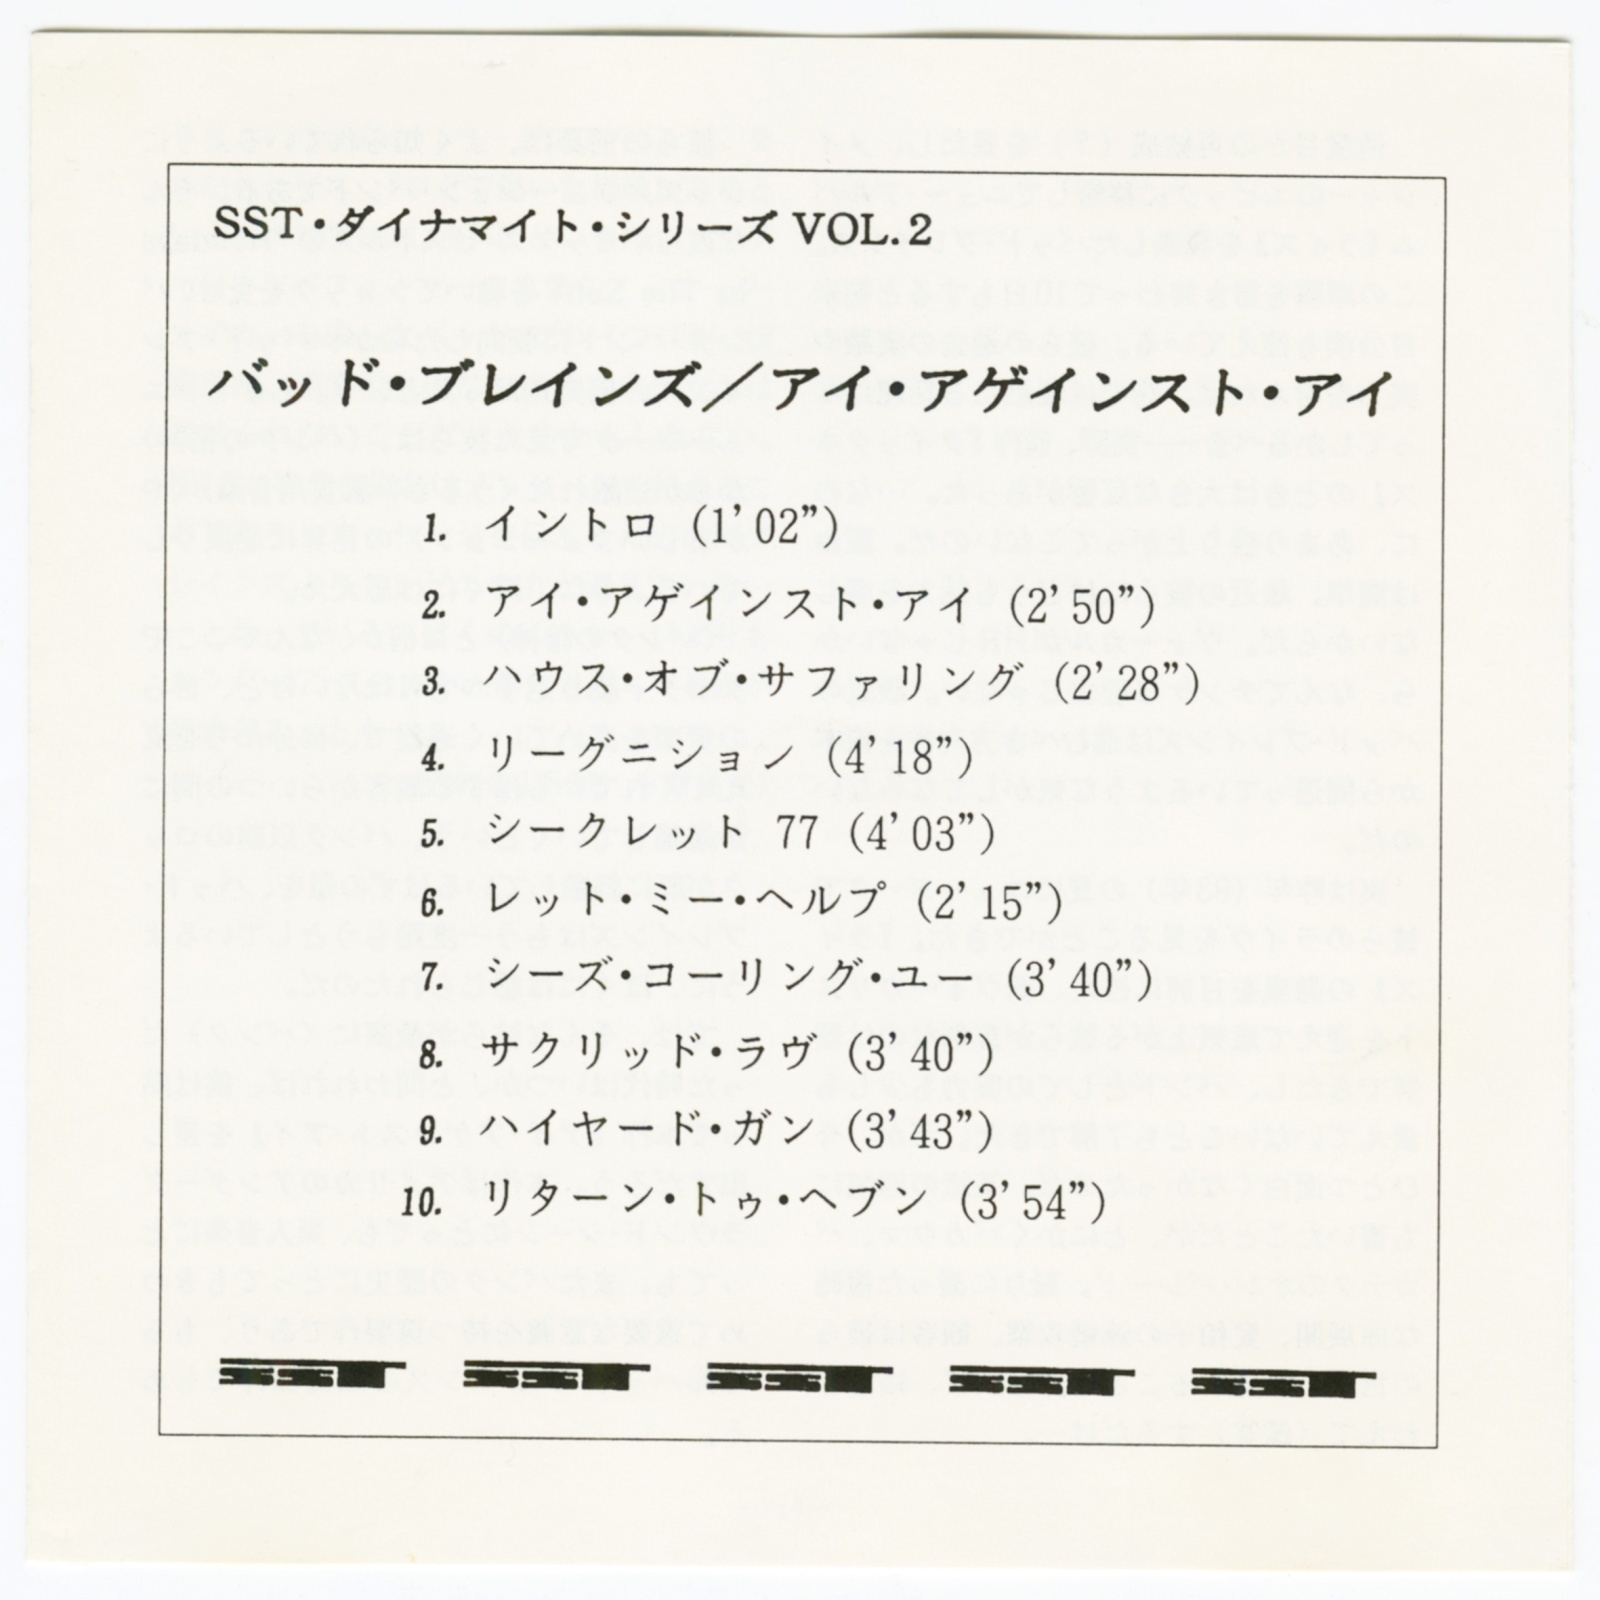 SST・ダイナマイト・シリーズ VOL.2
バッド・ブレインズ／アイ・アゲインスト・アイ
1. イントロ (1’02”)
2. アイ・アゲインスト・アイ (2’50”)
3. ハウス・オブ・サファリング (2’28”)
4. リーグニション (4’18”)
5. シークレット 77 (4’03”)
6. レット・ミー・ヘルプ (2’15”)
7. シーズ・コーリング・ユー (3’40”)
8. サクリッド・ラヴ (3’40”)
9. ハイヤード・ガン (3’43”)
10. リターン・トゥ・ヘブン (3’54”)
SST SST SST SST SST